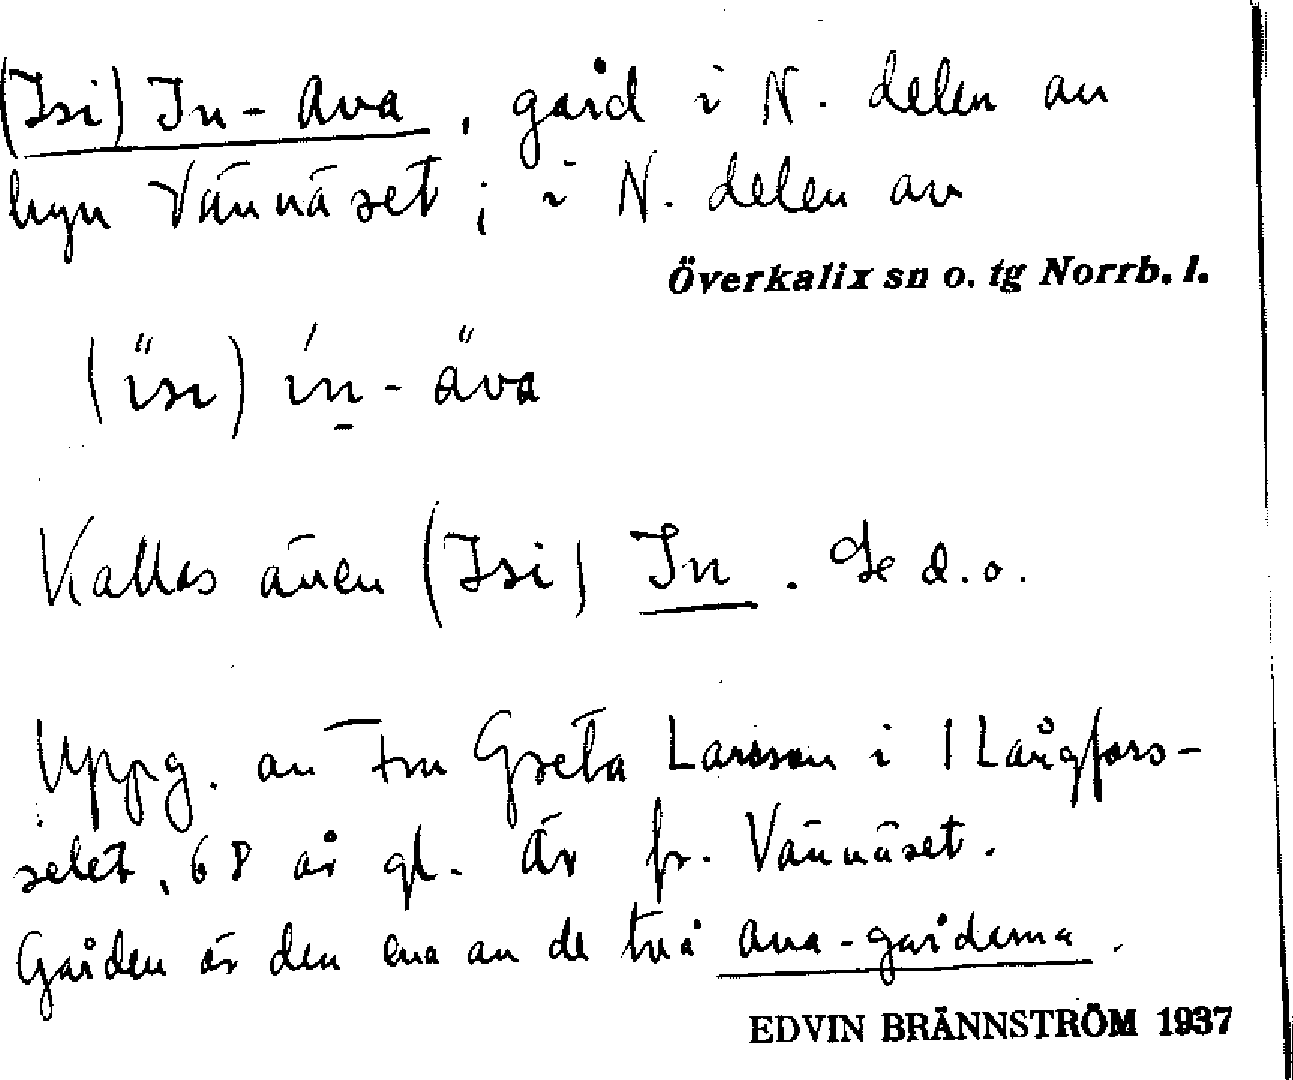 (Isi) In-Ava, gård i N. delen av
byn Vännäset; i N. delen av
Överkalix sn o. tg Norrb. l.
(ïsi) ín-äva
Kallas även (Isi) In. Se d.o.
Uppg. av Fru Greta Larsson i Långfors-
selet, 68 år gl. Är fr. Vännäset.
Gården är den ena av de två Ava-gårderna.
EDVIN BRÄNNSTRÖM 1937